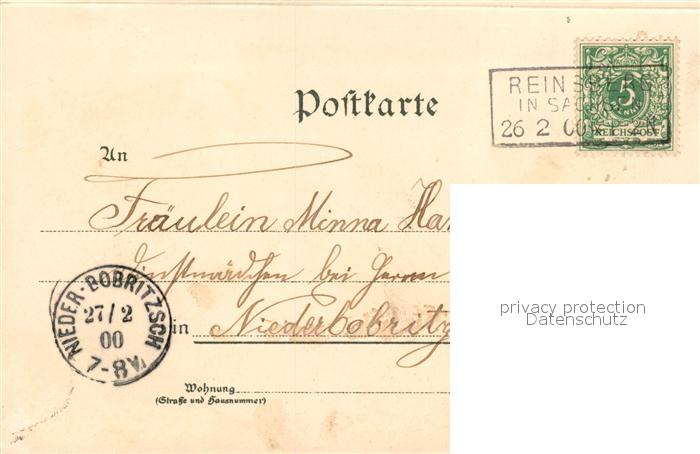 Postkarte
REINSBERG
IN SACHSEN
26 2 00
5
PFENNIG
REICHSPOST
An
Fräulein Minna Ha
Dienstmädchen bei Herrn
in Niederbobritz
NIEDER-BOBRITZSCH
27/2
00
7-8V
Wohnung
(Straße und Hausnummer)
privacy protection
Datenschutz